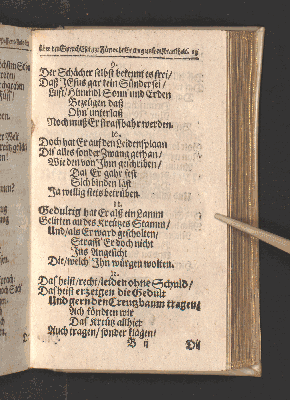 9.
Der Schächer selbst bekennt es frei/
Daß JEsus gar kein Sünder sei/
Luft/Himmel Sonn und Erden
Bezeugen daß
Ohn unterlaß
Noch muß Er straffbahr werden.
10.
Doch hat Er auf den Leidensplaan
Diß alles sonder Zwang gethan/
Wie den von Ihm geschriben/
Daß Er gahr fest
Sich binden läst
Ja willig stets betrüben.
11.
Gedultig hat Er alß ein Lamm
Gelitten an des Kreützes Stamm/
Und/als Er ward gescholten/
Straafft Er doch nicht
Ins Angesicht
Die/welch' Ihn würgen wolten.
12.
Das heist/recht/leiden ohne Schuld/
Das heist erzeigen die Gedult
Und gern den Creutzbaum tragen/
Ach könten wir
Das Kreütz allhier
Auch tragen/sonder klagen/
B ij